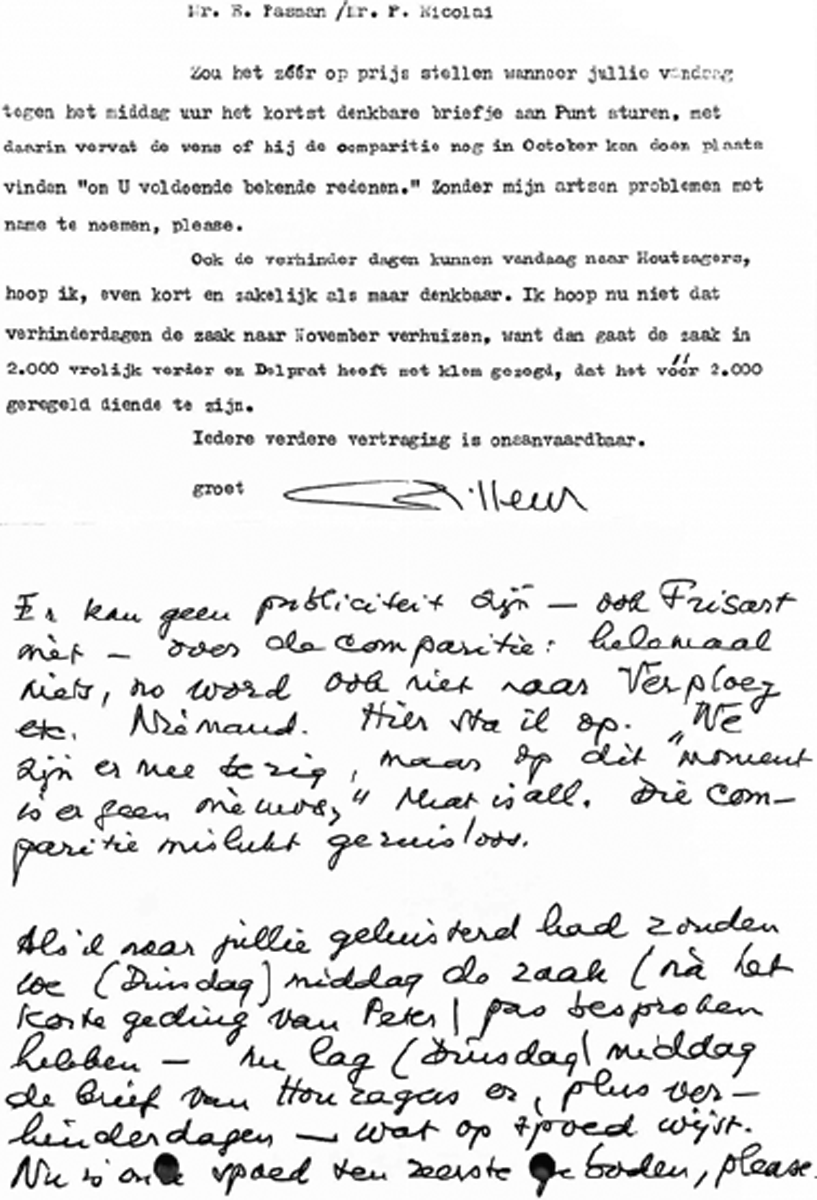 Mr. E. Pasman /Mr. P. Nicolai
Zou het zéér op prijs stellen wanneer jullie vandaag
tegen het middag uur het kortst denkbare briefje aan Punt sturen, met
daarin vervat de wens of hij de comparitie nog in October kan doen plaats
vinden "om U voldoende bekende redenen." Zonder mijn artsen problemen met
name te noemen, please.
Ook de verhinder dagen kunnen vandaag naar Houtzagers,
hoop ik, even kort en zakelijk als maar denkbaar. Ik hoop nu niet dat
verhinderdagen de zaak naar November verhuizen, want dan gaat de zaak in
2.000 vrolijk verder en Delprat heeft met klem gezegd, dat het vóór 2.000
geregeld diende te zijn.
Iedere verdere vertraging is onaanvaardbaar.
groet
Er kan geen publiciteit zijn — ook Frisart
niet — over de comparitie: helemaal
niets, no word ook niet naar Verploeg
etc. Niémand. Hier sta ik op. „We
zijn er mee bezig, maar op dit moment
is er geen nieuws," that is all. Die com-
paritie mislukt geruisloos.
Als ik naar jullie geluisterd had zouden
we (Dinsdag) middag de zaak (ná het
korte geding van Peter) pas besproken
hebben — nu lag (Dinsdag) middag
de brief van Houzagers er, plus ver-
hinderdagen — wat op spoed wijst.
Nu is onze spoed ten zeerste geboden, please.